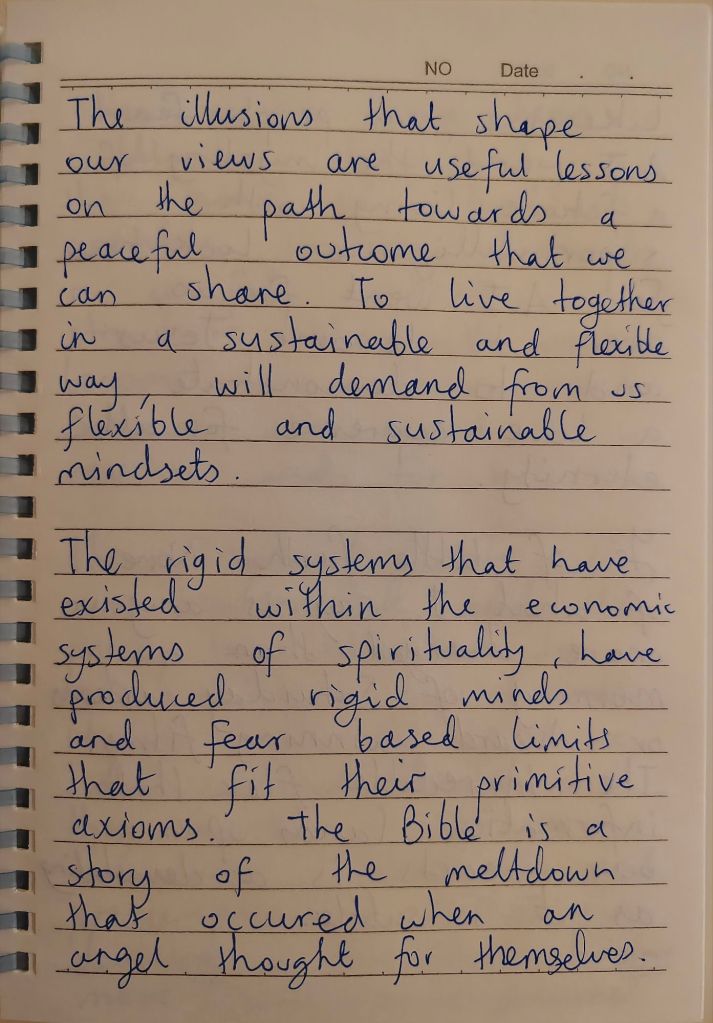 NO Date . .
The illusions that shape
our views are useful lessons
on the path towards a
peaceful outcome that we
can share. To live together
in a sustainable and flexible
way, will demand from us
flexible and sustainable
mindsets.
The rigid systems that have
existed within the economic
systems of spirituality, have
produced rigid minds
and fear based limits
that fit their primitive
axioms. The Bible is a
story of the meltdown
that occured when an
angel thought for themselves.